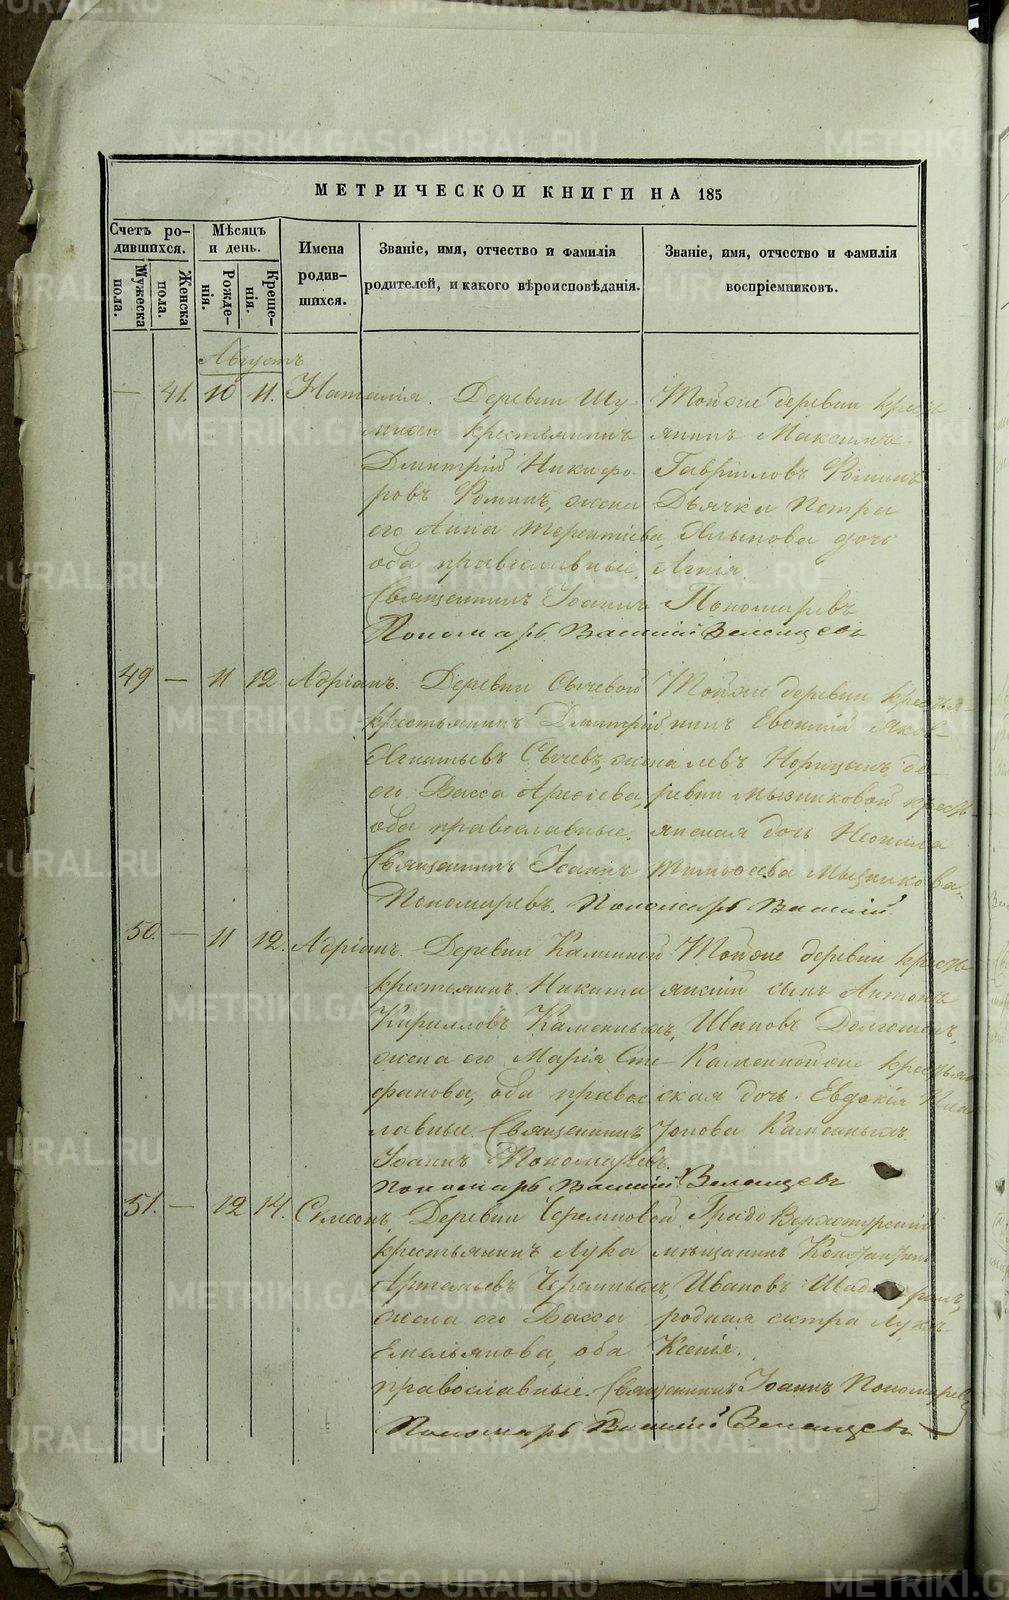 METRIKI.GASO-URAL.RU
МЕТРИЧЕСКОЙ КНИГИ НА 185
Счетъ родившихся.
Мужеска пола.
Женска пола.
Мѣсяцъ и день.
Рожденія.
Крещенія.
Имена родившихся.
Званіе, имя, отчество и фамилія родителей, и какого вѣроисповѣданія.
Званіе, имя, отчество и фамилія воспріемниковъ.
Августъ
— 41. 10 11. Наталія.
Деревни Шу-
михи крестьянинъ
Дмитрій Никифо-
ровъ Ѳоминъ, жена
его Анна Терентіева,
оба православные.
Тойже деревни кресть-
янинъ Максимъ
Гавріиловъ Ѳоминъ
Дьячка Петра
дочь
Агнія.
Священникъ Іоаннъ Пономаревъ
Пономарь Василій
49 — 11 12 Адріанъ.
Деревни Сычевой
крестьянинъ Дмитрій
Игнатьевъ Сычевъ, жена
его Васса
оба православные.
Тойже деревни крестья-
нинъ Евѳимій Яков-
левъ де-
ревни Мызниковой кресть-
янская дочь Неонила
Тимоѳеева Мызникова.
Священникъ Іоаннъ
Пономаревъ. Пономарь Василій
50. — 11 12. Адріанъ.
Деревни Каменной
крестьянинъ Никита
Кирилловъ Каменныхъ,
жена его Марія Сте-
фанова, оба правос-
лавные.
Тойже деревни кресть-
янскій сынъ Антонъ
Ивановъ
Каменнойже крестьян-
ская дочь Евдокія
Каменныхъ.
Священникъ
Іоаннъ Пономаревъ.
Пономарь Василій
51. — 12 14. Симеонъ.
Деревни
крестьянинъ Лука
жена его Васса
Емельянова, оба
православные.
Града Верхотурскій
мѣщанинъ Константинъ
Ивановъ
родная сестра Луки
Ксенія.
Священникъ Іоаннъ Пономаревъ
Пономарь Василій